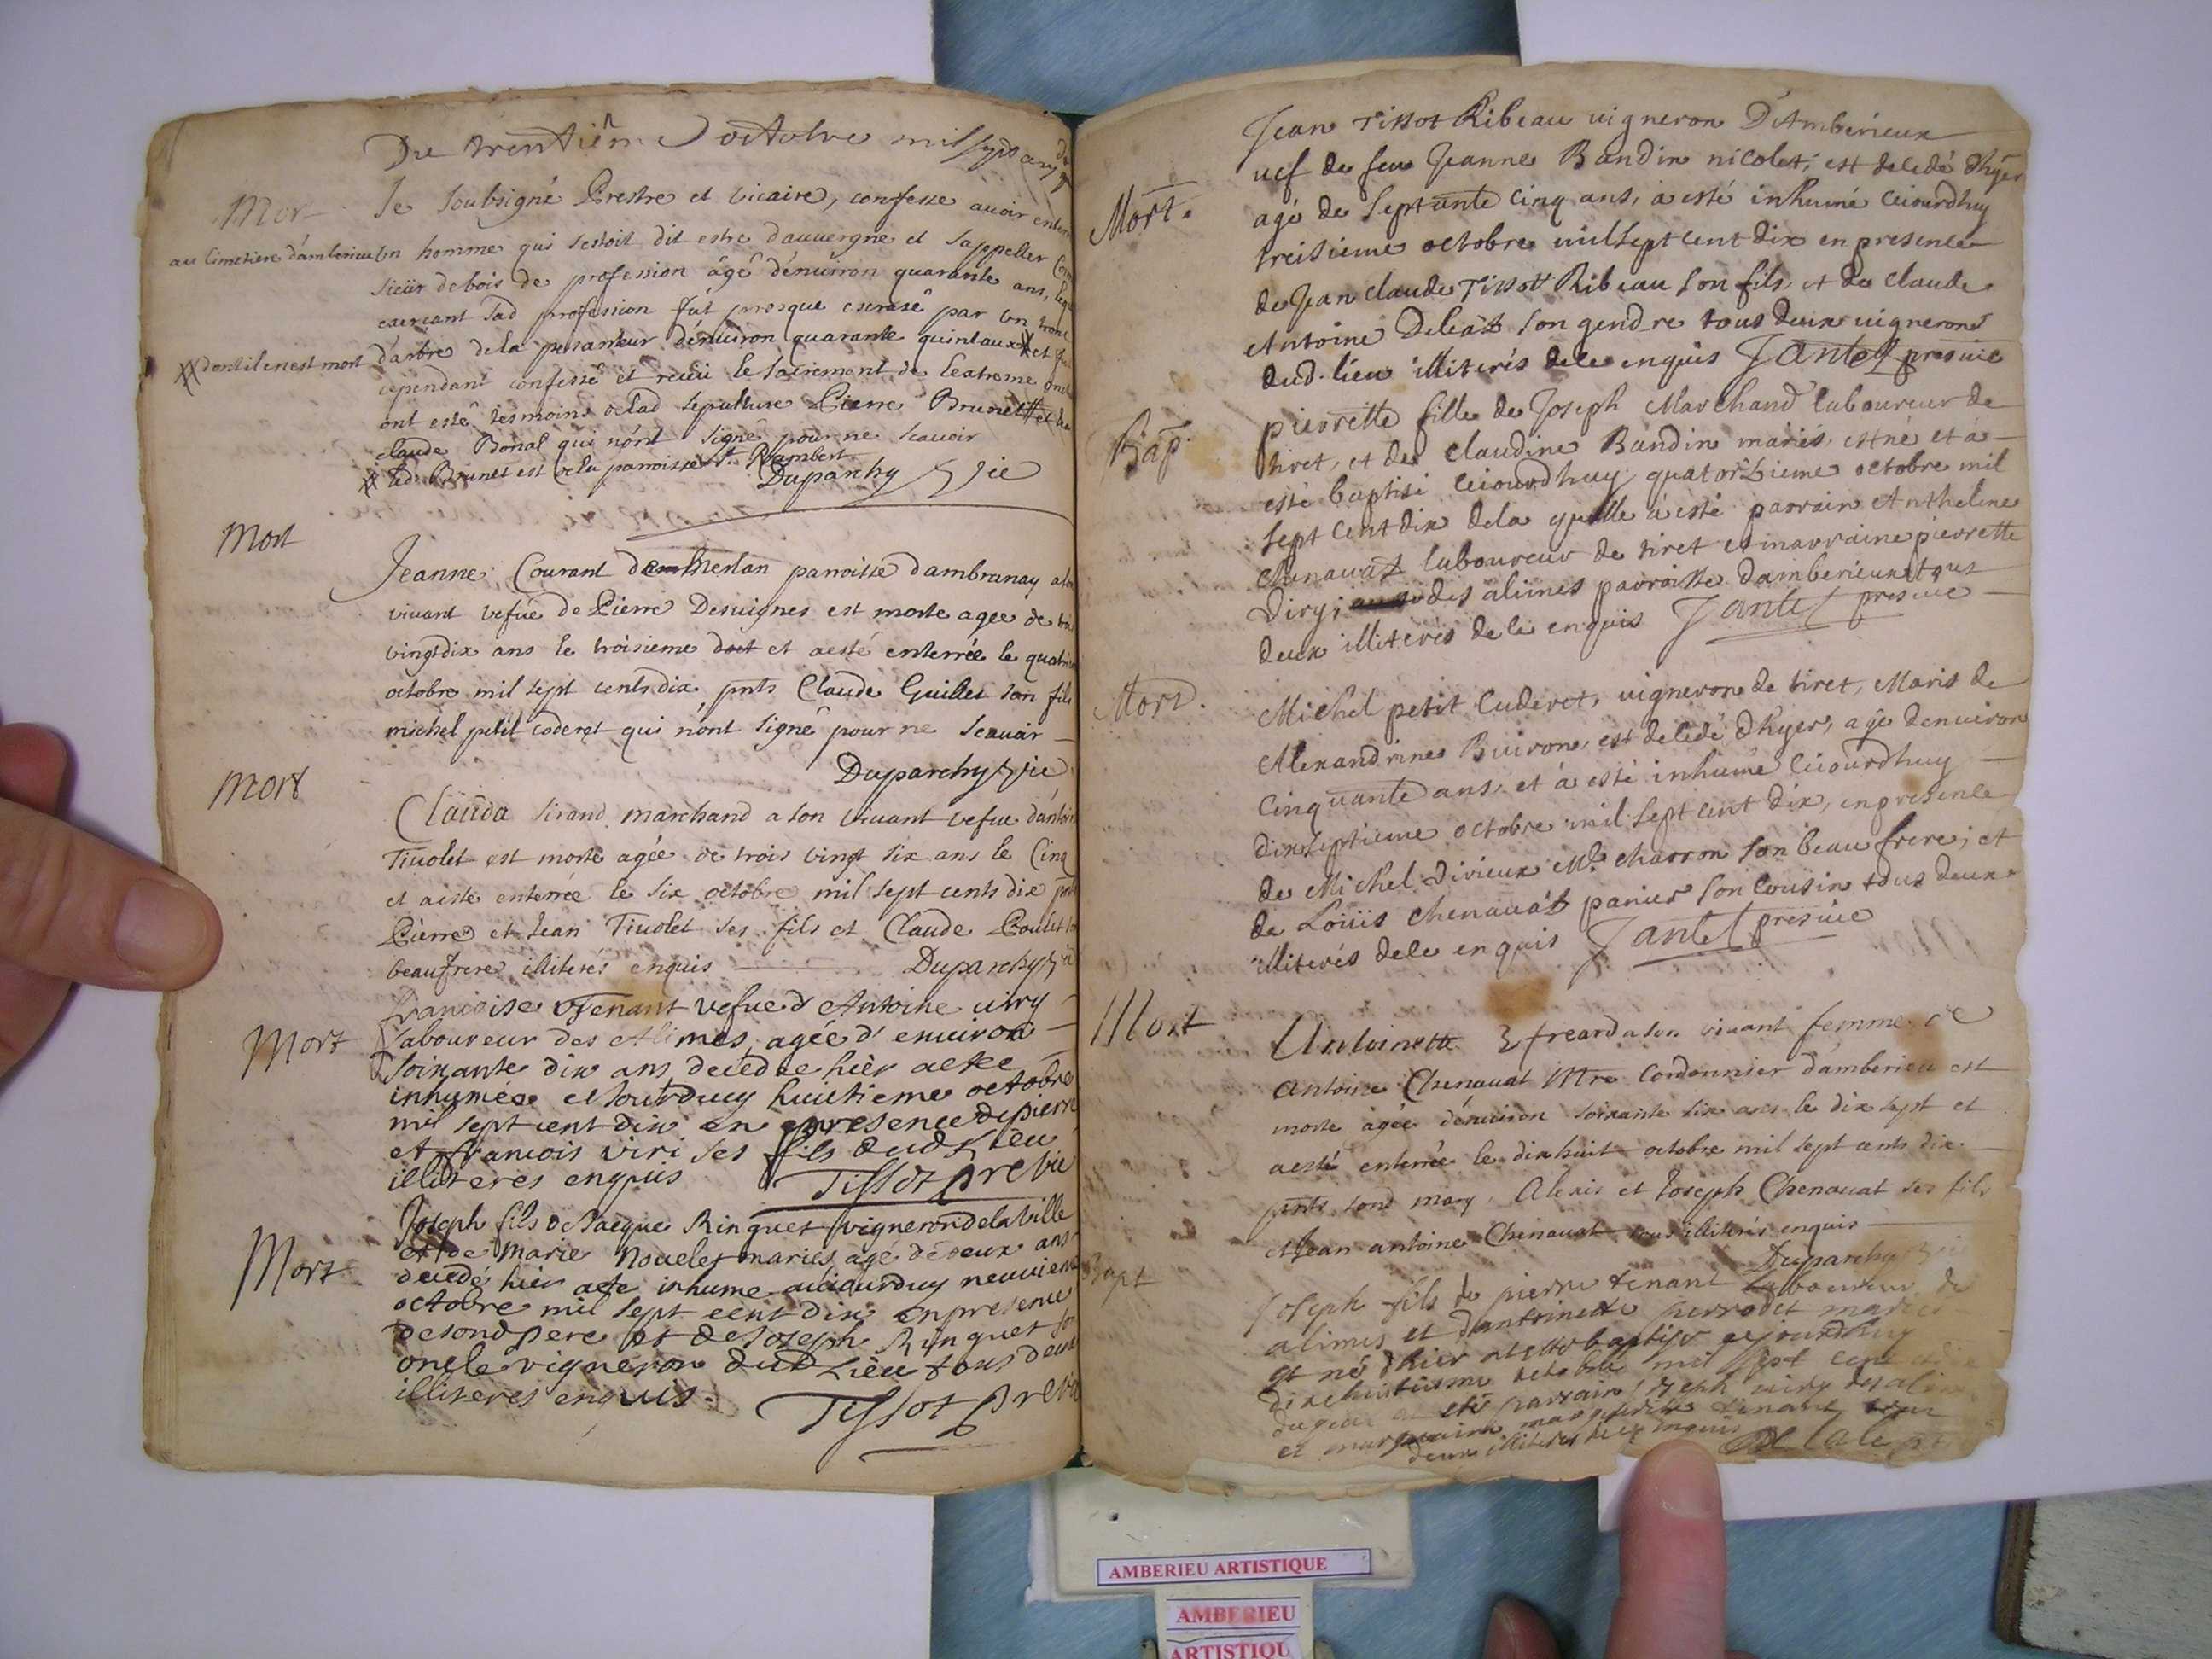 Du trentiême octobre mil sept cens dix
Mort
Je soubsigné Prestre et vicaire, confesse avoir enterré
au cimetiere d'amberieu
un homme qui sestoit dit estre d'auvergne et sappeller
sieur de bois de profession âgé d'environ quarante ans,
exerçant sad profession fut presque escrasé par un tronc
d'arbre de la pesanteur d'environ quarante quintaux et
## dont il en est mort
cependant confessé et reçeu le sacrement de lextreme
ont esté tesmoins de lad sepulture Pierre Brunet # et
claude Bonal qui n'ont signé pour ne scavoir
# led. Brunet est de la parroisse St. Rambert
Duparchy Vic
Mort
Jeanne Courant de Merlan parroisse d'ambrunay a son
vivant vefue de Pierre Desvignes est morte agee de
vingt dix ans le troisieme doct et a esté enterrée le quatrie
octobre mil sept cents dix, pnts Claude Guillet son fils
michel petit coderet qui n'ont signé pour ne scavoir
Duparchy Vic
Mort
Clauda sirand marchand a son vivant vefue d'antoine
Tivolet est morte agée de trois vingt six ans le cinq
et a esté enterrée le six octobre mil sept cents dix pnts
Pierre et Jean Tivolet ses fils et Claude Poulet
beaufrere illiterés enquis
Duparchy Vic
Mort
francoise Tenant vefue d'Antoine viry
laboureur des Alimes, agée d'environ
soixante dix ans decedee hier a este
inhumée cejourduy huictieme octobre
mil sept cent dix en presence de pierre
et francois viri ses fils dud Lieu
illiteres enquis
Tissot pre vic
Mort
Joseph fils de Jacque Ringuet vigneron de la ville
et de marie nouelet mariés, agé de deux ans
decedé hier a ete inhume aujourduy neuvieme
octobre mil sept cent dix en presence
de sond pere et de Joseph Ringuet son
oncle vigneron dud Lieu tous deux
illiteres enquis.
Tissot pre vic
Jean Tissot Ribeau vigneron D'Amberieux
Mort.
vef de feu Jeanne Bandin nicolet, est decedé d'hyer
agé de septante cinq ans, a esté inhumé cejourdhuy
treisieme octobre mil sept cent dix en presence
de Jean claude Tissot Ribeau son fils, et de claude
Antoine Deleaz son gendre tous deux vignerons
dud. lieu illiterés de ce enquis Jantet pres vic
Bap.
pierrette fille de Joseph Marchand laboureur de
tiret, et de claudine Bandin mariés, est né et a
esté baptisé cejourdhuy quatorzieme octobre mil
sept cent dix de la quelle a esté parrain Anthelme
chenavaz laboureur de tiret et marraine pierrette
Dirgi des alimes parroisse d'amberieux tous
deux illiterés de ce enquis Jantet pres vic
Mort.
Michel petit Cuderet, vigneron de tiret, Maris de
Alexandrine Buiron, est decedé d'hyer, agé denviron
Cinquante ans, et a esté inhumé cejourdhuy
dixseptieme octobre mil sept cent dix, en presence
de Michel Divieux Me. charron son beau frere, et
de Loüis chenavaz panier son cousin tous deux
illiterés de ce enquis Jantet pres vic
Mort
Antoinette Efreard a son vivant femme de
antoine Chenavat Mre cordonnier d'amberieu est
morte agée d'environ soixante six ans le dix sept et
a esté enterrée le dix huit octobre mil sept cents dix
pnts sond mary, Alexis et Joseph Chenavat ses fils
et Jean antoine Chenavat tous illiterés enquis
Duparchy Vic
Bapt
Joseph fils de pierre tenant laboureur de
alimes et dantoinette perrodet mariés
et né d'hier a esté baptisé cejourdhuy
dixhuitiesme octobre mil sept cent dix
duquel a esté parrain Joseph viry des alimes
et marraine marguerite tenant tous
deux illiteres de ce enquis
AMBERIEU ARTISTIQUE
AMBERIEU
ARTISTIQU